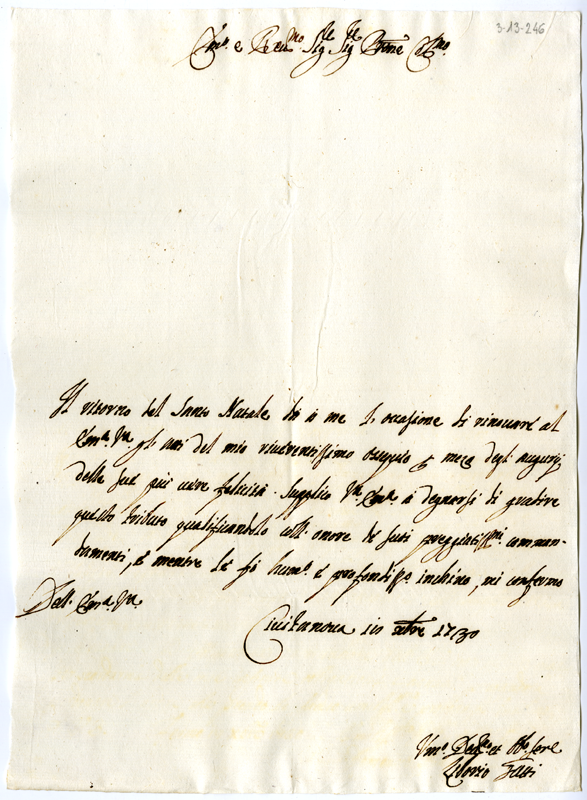 3-13-246
Em.o e R.mo Sig.re Sig.re P̃rone Col.mo
Il ritorno del Santo Natale dà a me l'occasione di rinovare al
Em.a V.ra gl'atti del mio riverentissimo ossequio p mezo degl'augurij
delle sue più care felicità. Supplico V.ra Em.a a degnarsi di gradire
questo tributo qualificandolo coll'onore de suoi preggiatiss.mi comman-
damenti, e mentre le fò hum.o e profondiss.o inchino, mi confermo
Dell'Em.a V.ra
Civitanova 10 xbre 1730
Um.o Dev.mo et Obb.o Ser.e